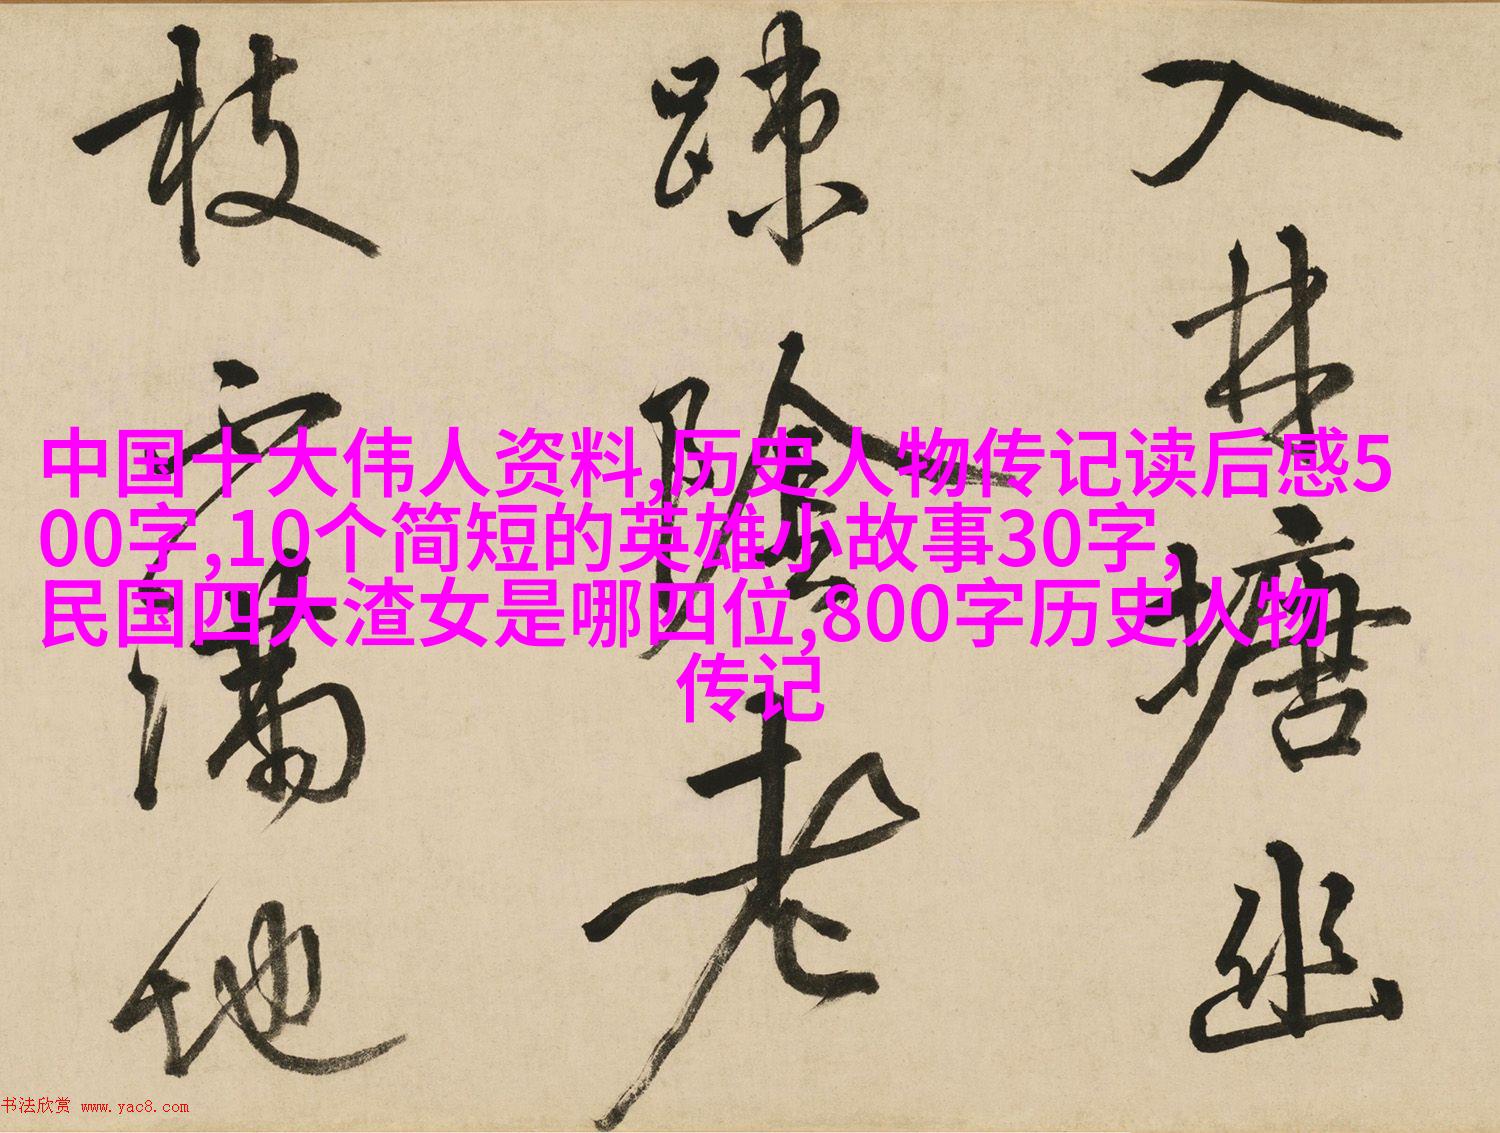 入林塘幽
踈陰老
枝下滿地
中国十大伟人资料,历史人物传记读后感5
00字,10个简短的英雄小故事30字,
民国四大渣女是哪四位,800字历史人物
传记
书法欣赏 www.yac8.com